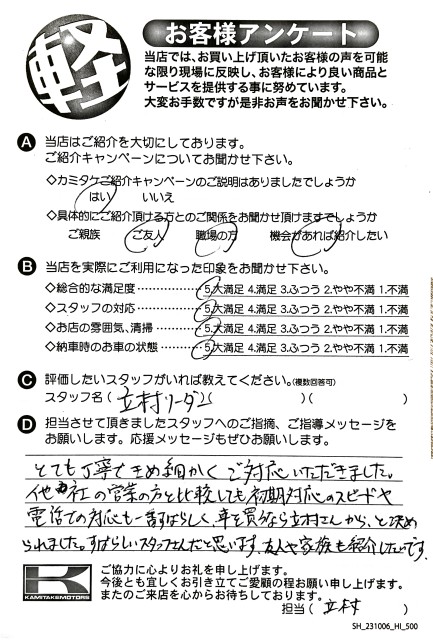 軽
お客様アンケート
当店では、お買い上げ頂いたお客様の声を可能
な限り現場に反映し、お客様により良い商品と
サービスを提供する事に努めています。
大変お手数ですが是非お声をお聞かせ下さい。
A 当店はご紹介を大切にしております。
ご紹介キャンペーンについてお聞かせ下さい。
◇カミタケご紹介キャンペーンのご説明はありましたでしょうか
はい いいえ
◇具体的にご紹介頂ける方とのご関係をお聞かせ頂けますでしょうか
ご親族 ご友人 職場の方 機会があれば紹介したい
B 当店を実際にご利用になった印象をお聞かせ下さい。
◇総合的な満足度………………5.大満足 4.満足 3.ふつう 2.やや不満 1.不満
◇スタッフの対応………………5.大満足 4.満足 3.ふつう 2.やや不満 1.不満
◇お店の雰囲気、清掃…………5.大満足 4.満足 3.ふつう 2.やや不満 1.不満
◇納車時のお車の状態…………5.大満足 4.満足 3.ふつう 2.やや不満 1.不満
C 評価したいスタッフがいれば教えてください。(複数回答可)
スタッフ名(立村リーダー)( )( )
D 担当させて頂きましたスタッフへのご指摘、ご指導メッセージを
お願いします。応援メッセージもぜひお願いします。
とても丁寧できめ細かくご対応いただきました。
他社の営業の方と比較しても初期対応のスピードや
電話での対応も一番すばらしく、車を買うなら立村さんから、と決め
られました。すばらしいスタッフさんだと思います。友人や家族も紹介したいです。
K
KAMITAKEMOTORS
ご協力に心よりお礼を申し上げます。
今後とも宜しくお引き立てご愛顧の程お願い申し上げます。
またのご来店を心からお待ちしております。
担当(立村)
SH_231006_HI_500